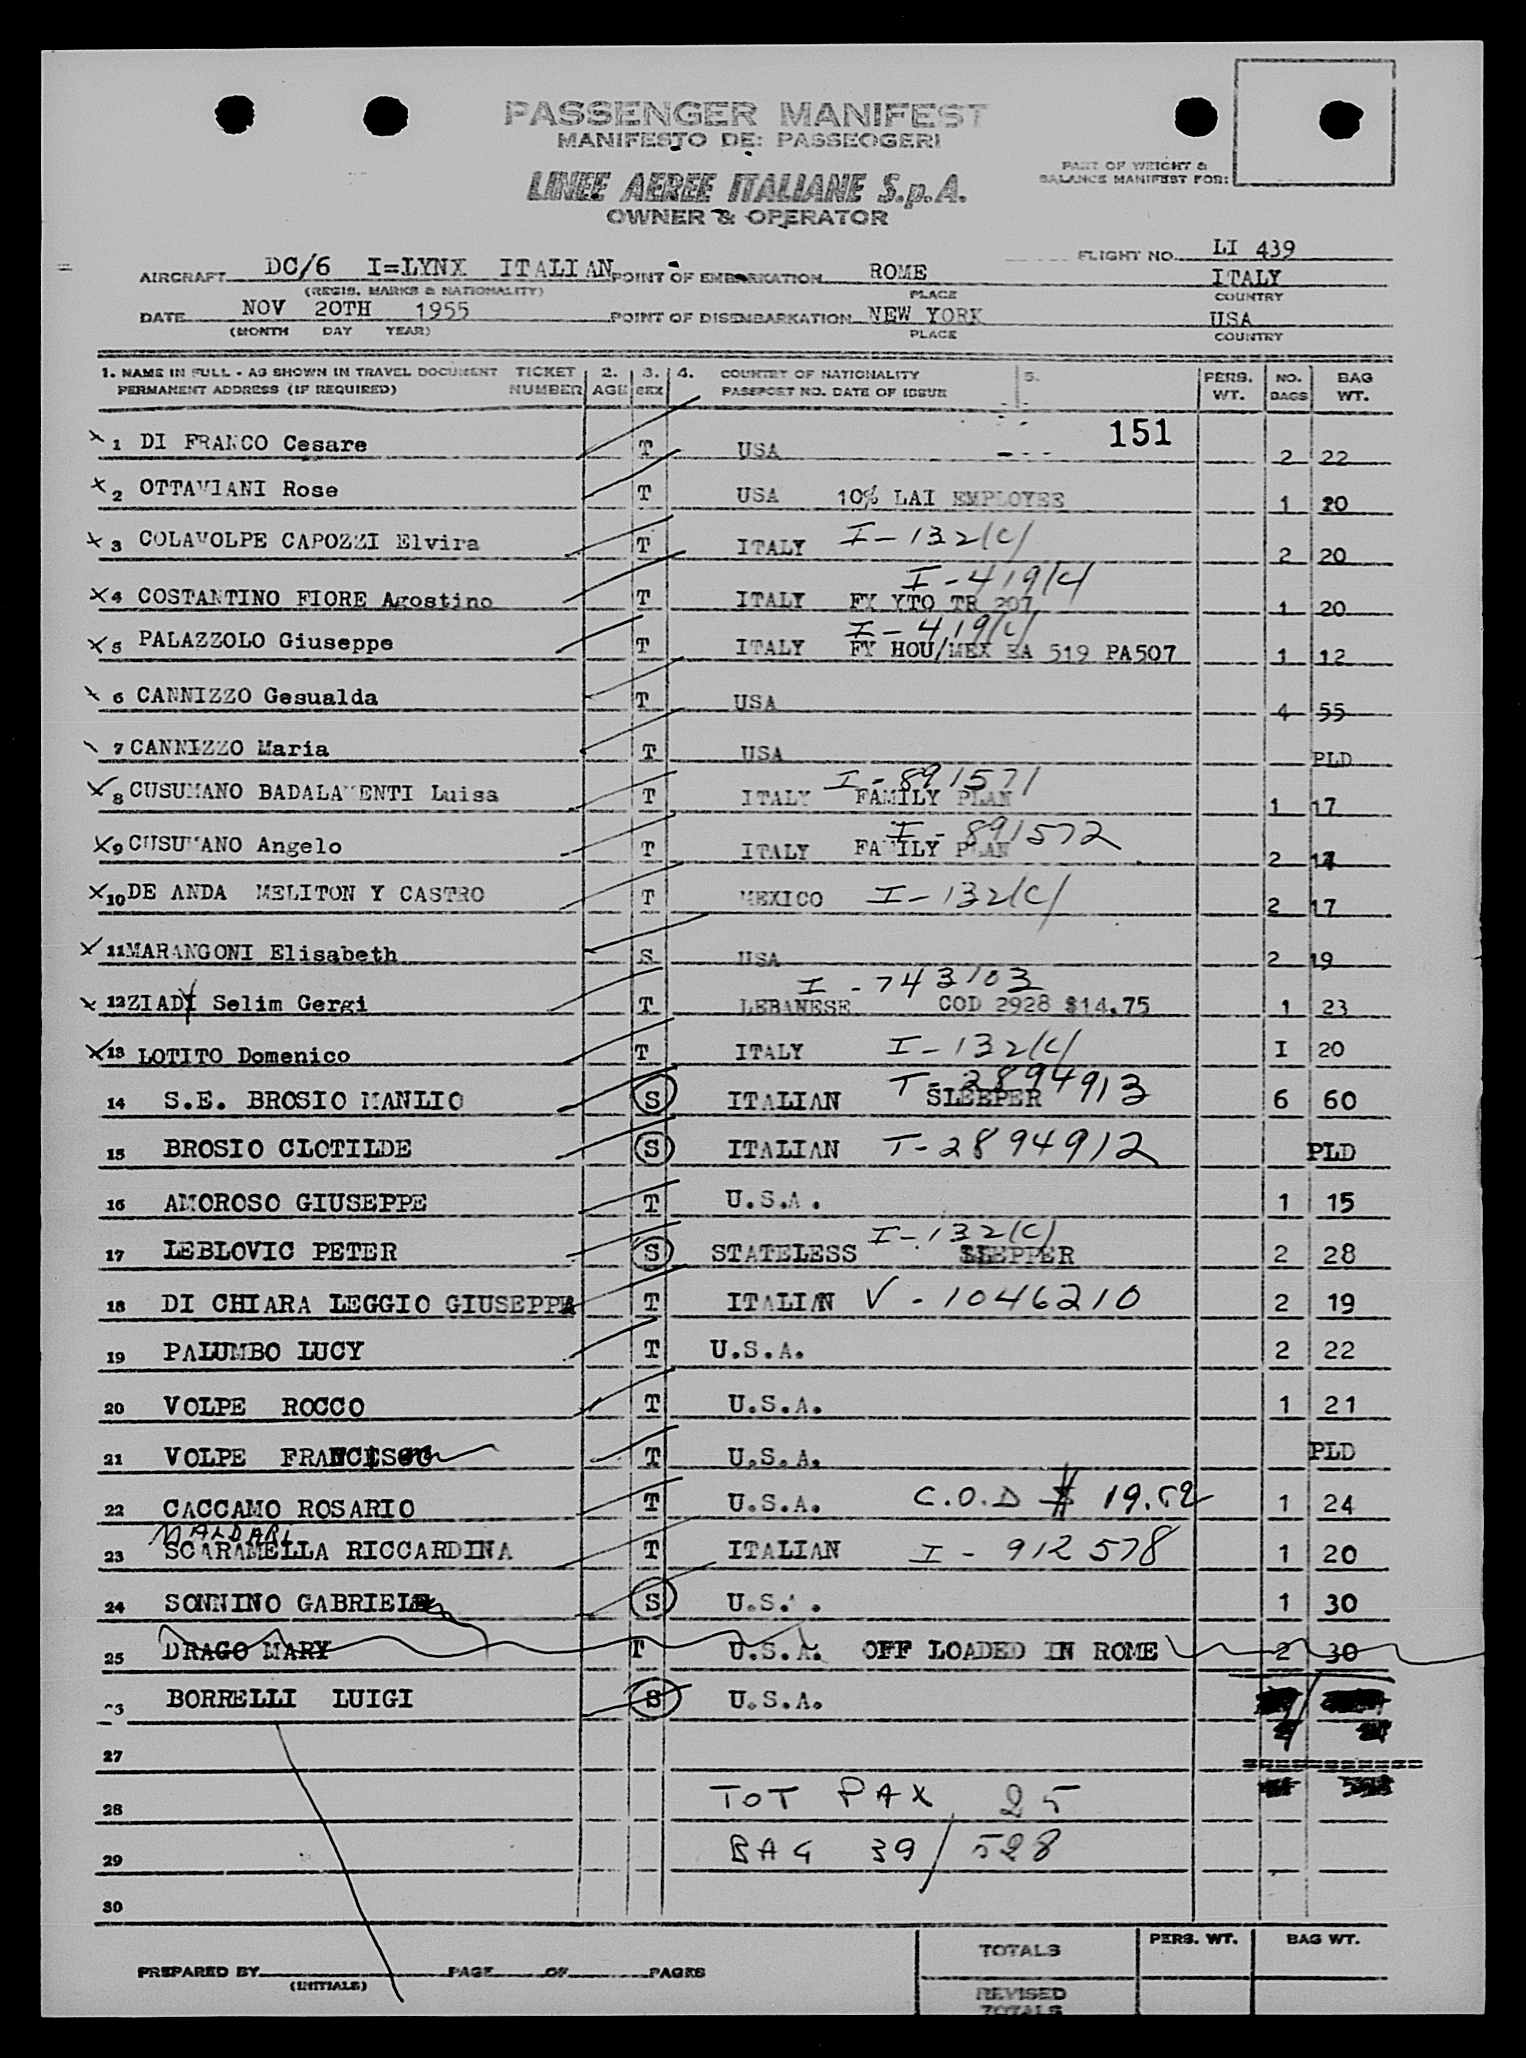 PASSENGER MANIFEST
MANIFESTO DE: PASSEOGERI
LINEE AEREE ITALIANE S.p.A.
OWNER & OPERATOR
PART OF WEIGHT &
BALANCE MANIFEST FOR:
FLIGHT NO. LI 439
AIRCRAFT DC/6 I=LYNX ITALIAN POINT OF EMBARKATION ROME ITALY
(REGIS. MARKS & NATIONALITY) PLACE COUNTRY
DATE NOV 20TH 1955 POINT OF DISEMBARKATION NEW YORK USA
(MONTH DAY YEAR) PLACE COUNTRY
1. NAME IN FULL - AS SHOWN IN TRAVEL DOCUMENT TICKET 2. 3. 4. COUNTRY OF NATIONALITY 5. PERS. NO. BAG
PERMANENT ADDRESS (IF REQUIRED) NUMBER AGE SEX PASSPORT NO. DATE OF ISSUE WT. BAGS WT.
151
x 1 DI FRANCO Cesare T USA 2 22
x 2 OTTAVIANI Rose T USA 10% LAI EMPLOYEE 1 20
x 3 COLAVOLPE CAPOZZI Elvira T ITALY I-132(C) 2 20
I-419(C)
x 4 COSTANTINO FIORE Agostino T ITALY FY YTO TR 207 1 20
I-419(C)
x 5 PALAZZOLO Giuseppe T ITALY FY HOU/MEX EA 519 PA507 1 12
x 6 CANNIZZO Gesualda T USA 4 55
7 CANNIZZO Maria T USA PLD
I-891571
x 8 CUSUMANO BADALAMENTI Luisa T ITALY FAMILY PLAN 1 17
I-891572
x 9 CUSUMANO Angelo T ITALY FAMILY PLAN 2
x 10 DE ANDA MELITON Y CASTRO T MEXICO I-132(C) 2 17
x 11 MARANGONI Elisabeth S USA 2 19
I-743103
x 12 ZIADY Selim Gergi T LEBANESE COD 2928 $14.75 1 23
x 13 LOTITO Domenico T ITALY I-132(C) I 20
T-2894913
14 S.E. BROSIO MANLIO S ITALIAN SLEEPER 6 60
15 BROSIO CLOTILDE S ITALIAN T-2894912 PLD
16 AMOROSO GIUSEPPE T U.S.A. 1 15
I-132(C)
17 LEBLOVIC PETER S STATELESS SLEPPER 2 28
18 DI CHIARA LEGGIO GIUSEPPA T ITALIAN V-1046210 2 19
19 PALUMBO LUCY T U.S.A. 2 22
20 VOLPE ROCCO T U.S.A. 1 21
21 VOLPE FRANCESCO T U.S.A. PLD
22 CACCAMO ROSARIO T U.S.A. C.O.D $ 19.52 1 24
MALDARI
23 SCARAMELLA RICCARDINA T ITALIAN I-912578 1 20
24 SONNINO GABRIELE S U.S.A. 1 30
25 DRAGO MARY T U.S.A. OFF LOADED IN ROME 2 30
BORRELLI LUIGI S U.S.A.
27
28 TOT PAX 25
29 BAG 39/528
30
TOTALS PERS. WT. BAG WT.
PREPARED BY (INITIALS) PAGE OF PAGES
REVISED
TOTALS